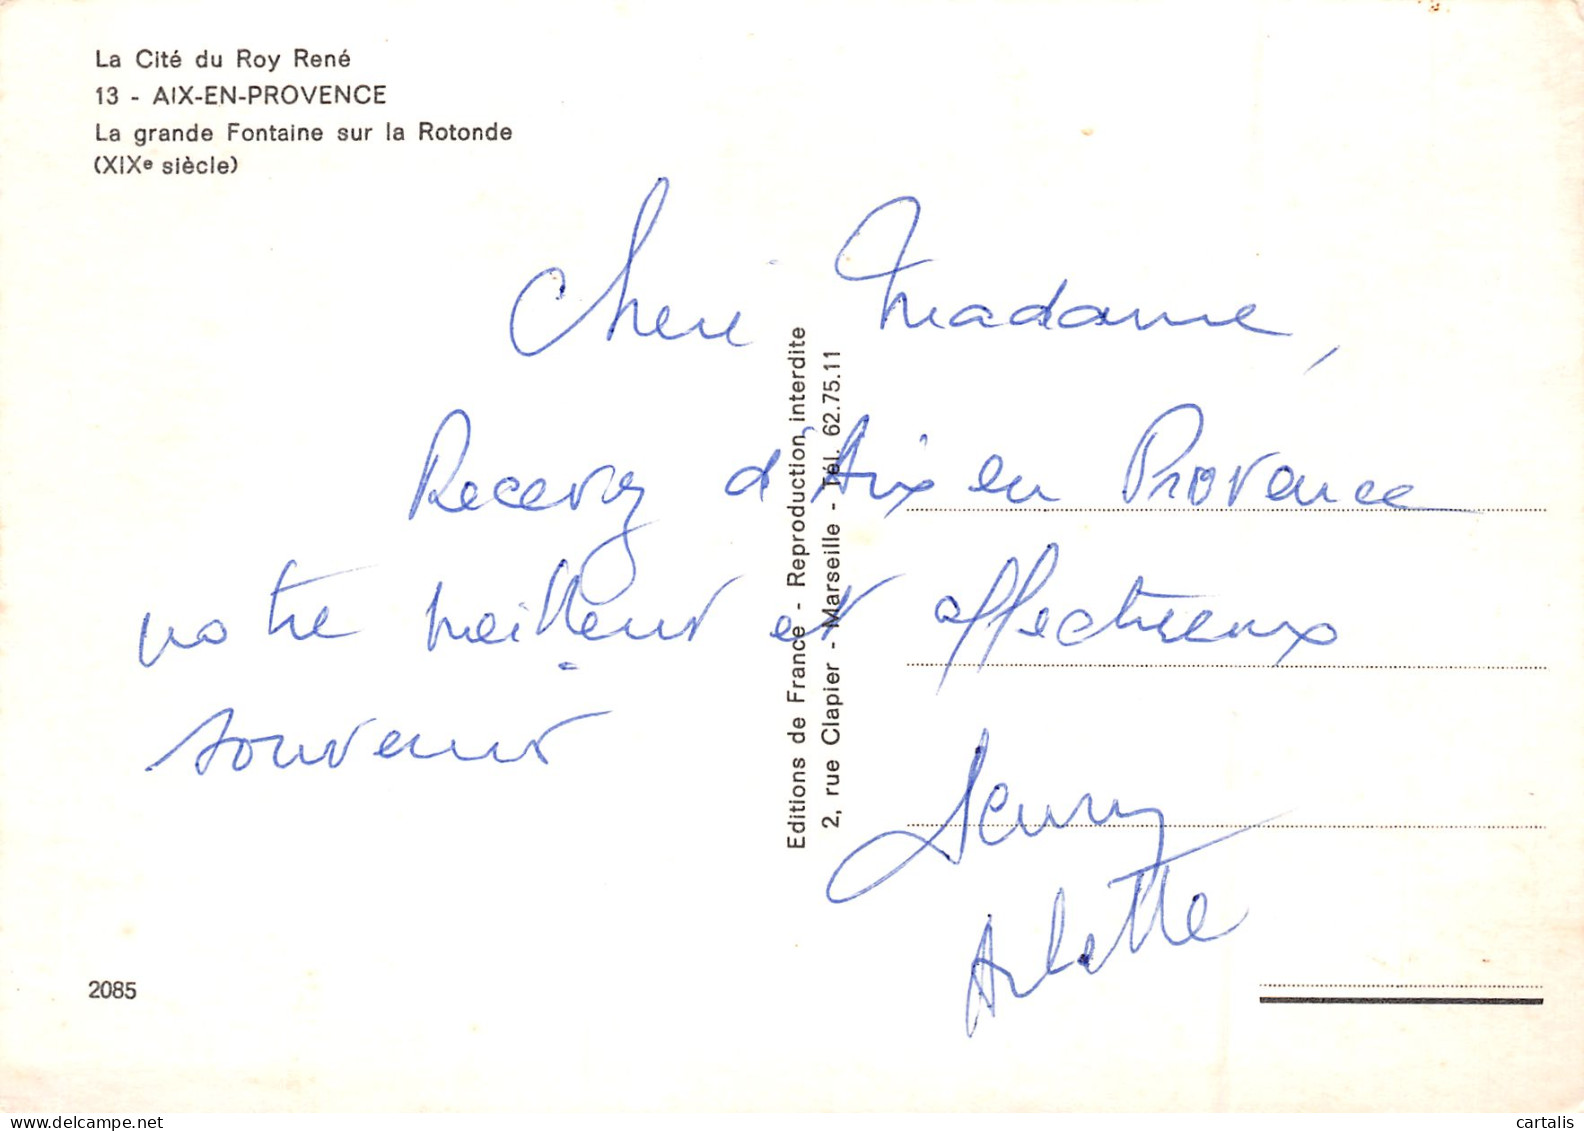 La Cité du Roy René
13 - AIX-EN-PROVENCE
La grande Fontaine sur la Rotonde
(XIXe siècle)
Cheri Madame,
Recevez d'Aix en Provence
notre meilleur et affectueux
souvenir
Arlette
Editions de France - Reproduction interdite
2, rue Clapier - Marseille - Tél. 62.75.11
2085
www.delcampe.net
cartalis